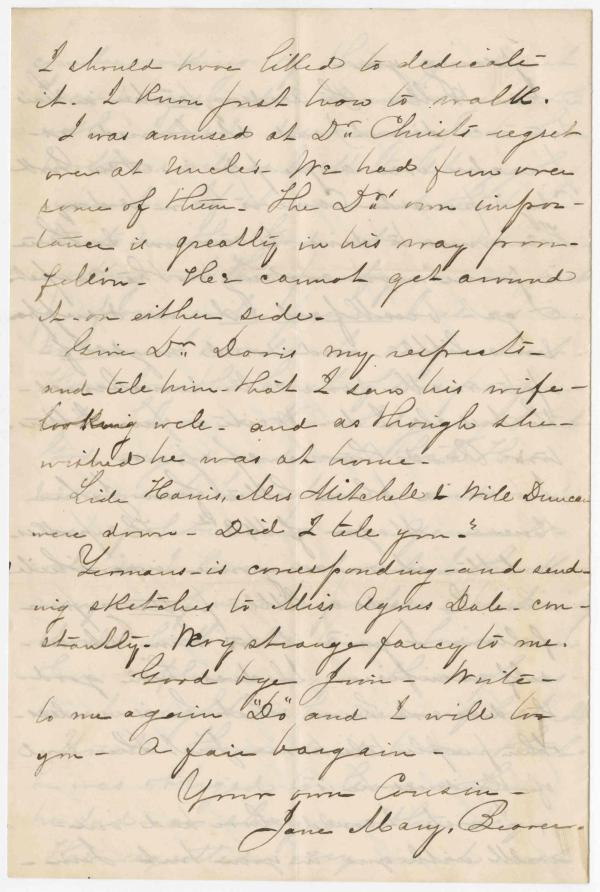 I should have liked to dedicate
it. I know just how to walk.
I was amused at Dr. Christs regret
over at Uncle's. We had fun over
some of them. The Drs' own impor-
tance is greatly in his way poor
fellow. He cannot get around
it - on either side.
Give Dr. Davis my respects -
and tele him that I saw his wife -
looking wele - and as though she -
wished he was at home -
Lide Harris, Mrs Mitchell & Will Duncan
were down - Did I tele you - ?
Yeomans - is corresponding - and send-
ing sketches to Miss Agnes Dale - con-
stantly. Very strange fancy to me.
Good bye Jim - Write -
to me again "Do" and I will to
you - A fair bargain -
Your own Cousin -
Jane Mary. Beaver.